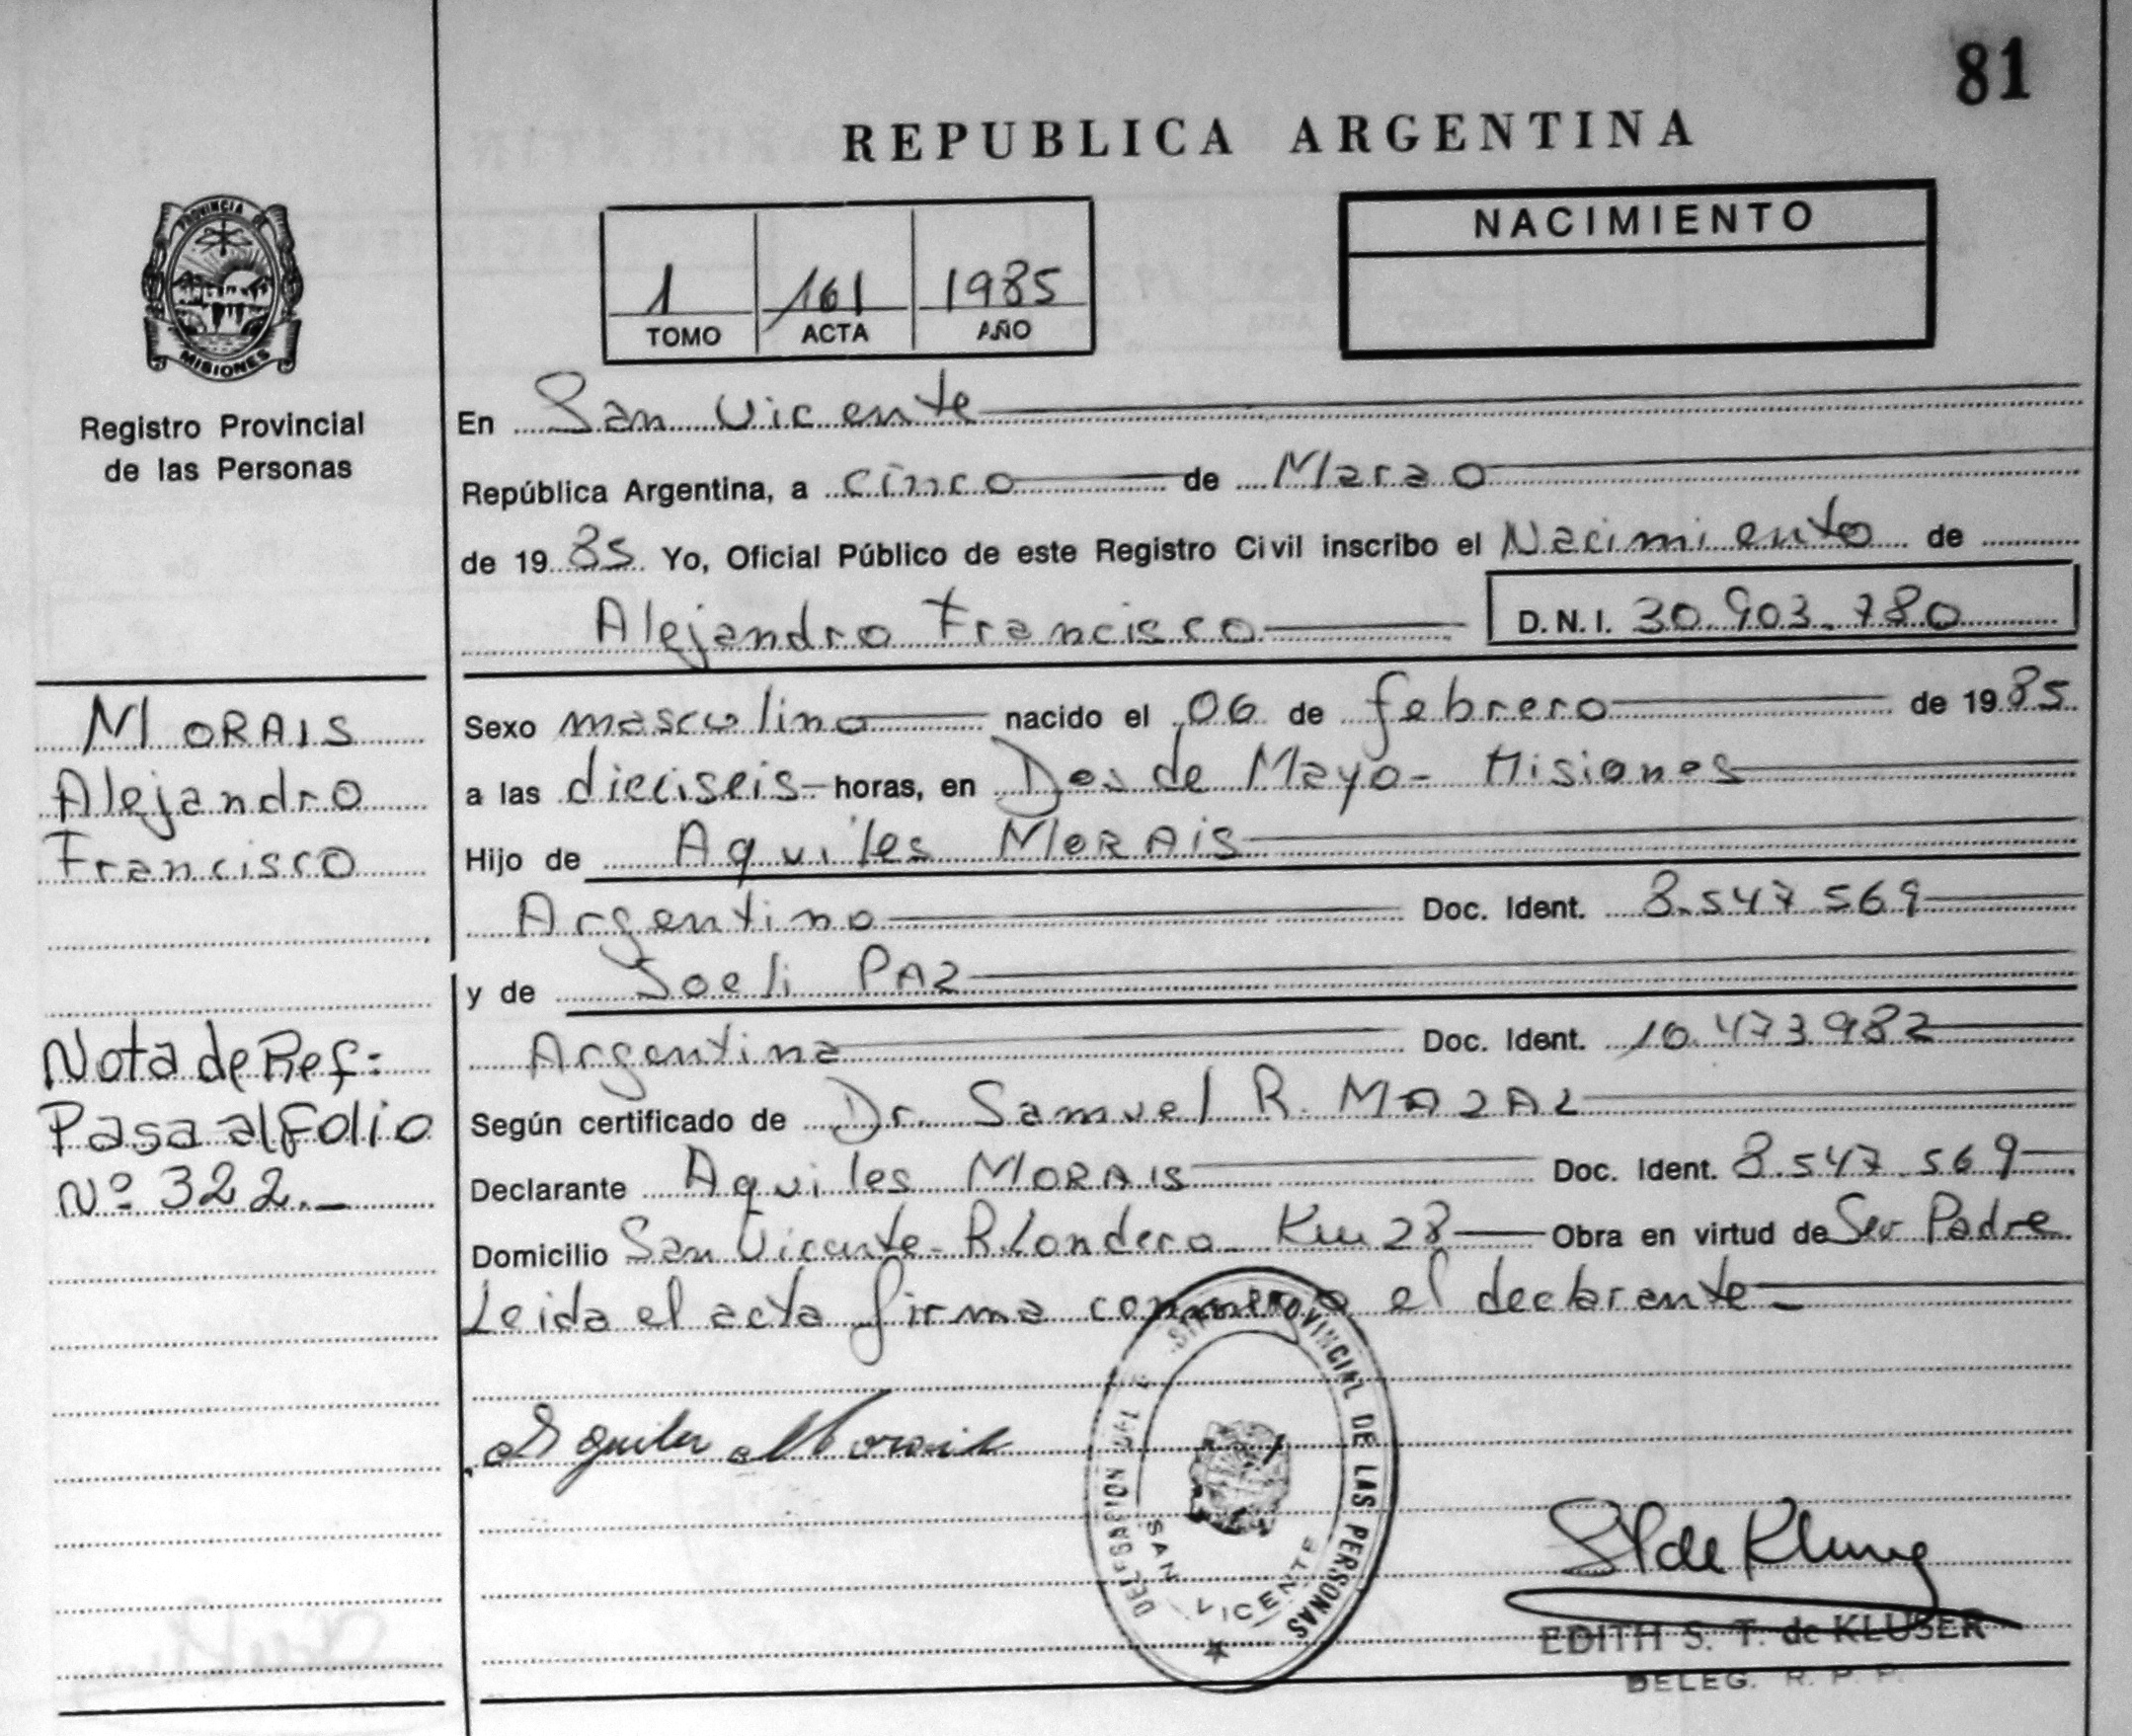 81
REPUBLICA ARGENTINA
PROVINCIA DE
MISIONES
Registro Provincial
de las Personas
1 161 1985
TOMO ACTA AÑO
NACIMIENTO
En San Vicente
República Argentina, a cinco de Marzo
de 1985 Yo, Oficial Público de este Registro Civil inscribo el Nacimiento de
Alejandro Francisco D.N.I. 30.903.780
MORAIS
Alejandro
Francisco
Sexo masculino nacido el 06 de febrero de 1985
a las dieciseis horas, en Dos de Mayo - Misiones
Hijo de Aquiles MORAIS
Argentino Doc. Ident. 8.547.569
y de Soeli PAZ
Argentina Doc. Ident. 10.473.982
Nota de Ref:
Pasa al Folio
Nº 322.-
Según certificado de Dr. Samuel R. MAZAL
Declarante Aquiles MORAIS Doc. Ident. 8.547.569
Domicilio San Vicente - R. Londero - Km 28 Obra en virtud de Ser Padre
Leida el acta firma conmigo el declarante-
Aquiles Morais
PROVINCIAL DE LAS PERSONAS
DELEGACION
SAN VICENTE
ST de Kluser
EDITH S. T. de KLUSER
DELEG. R. P. P.